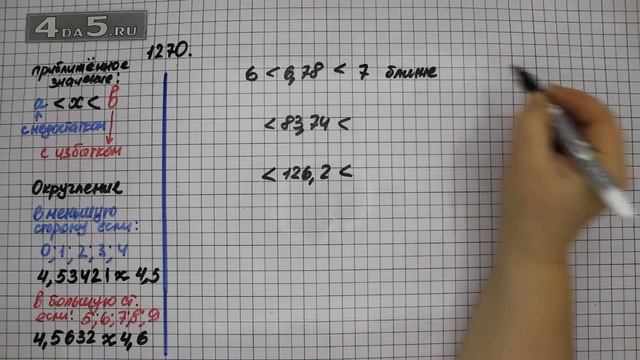 4DA5.RU
1270.
приближённое
значение:
a < x < b
с недостатком
с избытком
Округление
в меньшую
сторону если:
0; 1; 2; 3; 4
4,53421 ≈ 4,5
в большую ст.
если: 5; 6; 7; 8; 9
4,5632 ≈ 4,6
6 < 6,78 < 7 ближе
< 83,74 <
< 126,2 <